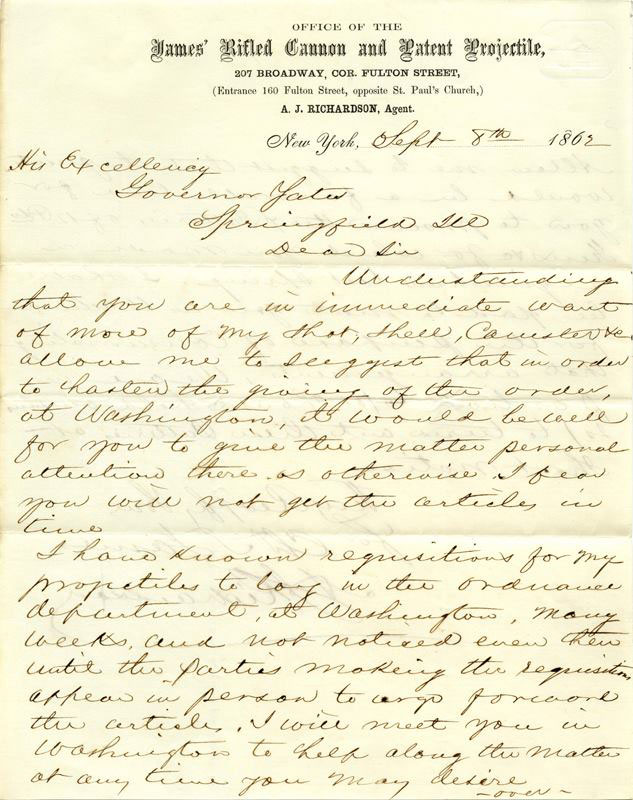 OFFICE OF THE
James' Rifled Cannon and Patent Projectile,
207 BROADWAY, COR. FULTON STREET,
(Entrance 160 Fulton Street, opposite St. Paul's Church,)
A. J. RICHARDSON, Agent.
New York, Sept 8th 1862
His Excellency
Governor Yates
Springfield Ill
Dear Sir
Understanding
that you are in immediate want
of more of my shot, shell, Canister &c.
allow me to suggest that in order
to hasten the giving of the order,
at Washington, it would be well
for you to give the matter personal
attention there as otherwise I fear
you will not get the articles in
time
I have known requisitions for my
projectiles to lay in the ordnance
department, at Washington, many
weeks, and not noticed even then
until the parties making the requisitions
appear in person to urge forward
the articles. I will meet you in
Washington to help along the matter
at any time you may desire
-over-